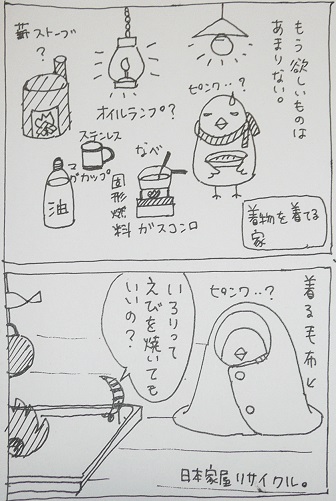 もう欲しいものは
あまりない。
ピンク…?
薪ストーブ
?
オイルランプ?
ステンレス
マグカップ
油
なべ
固形燃料
ガスコンロ
着物を着てる
家
着る毛布
ピンク…?
いろりって
えびを焼いても
いいの?
日本家屋リサイクル。